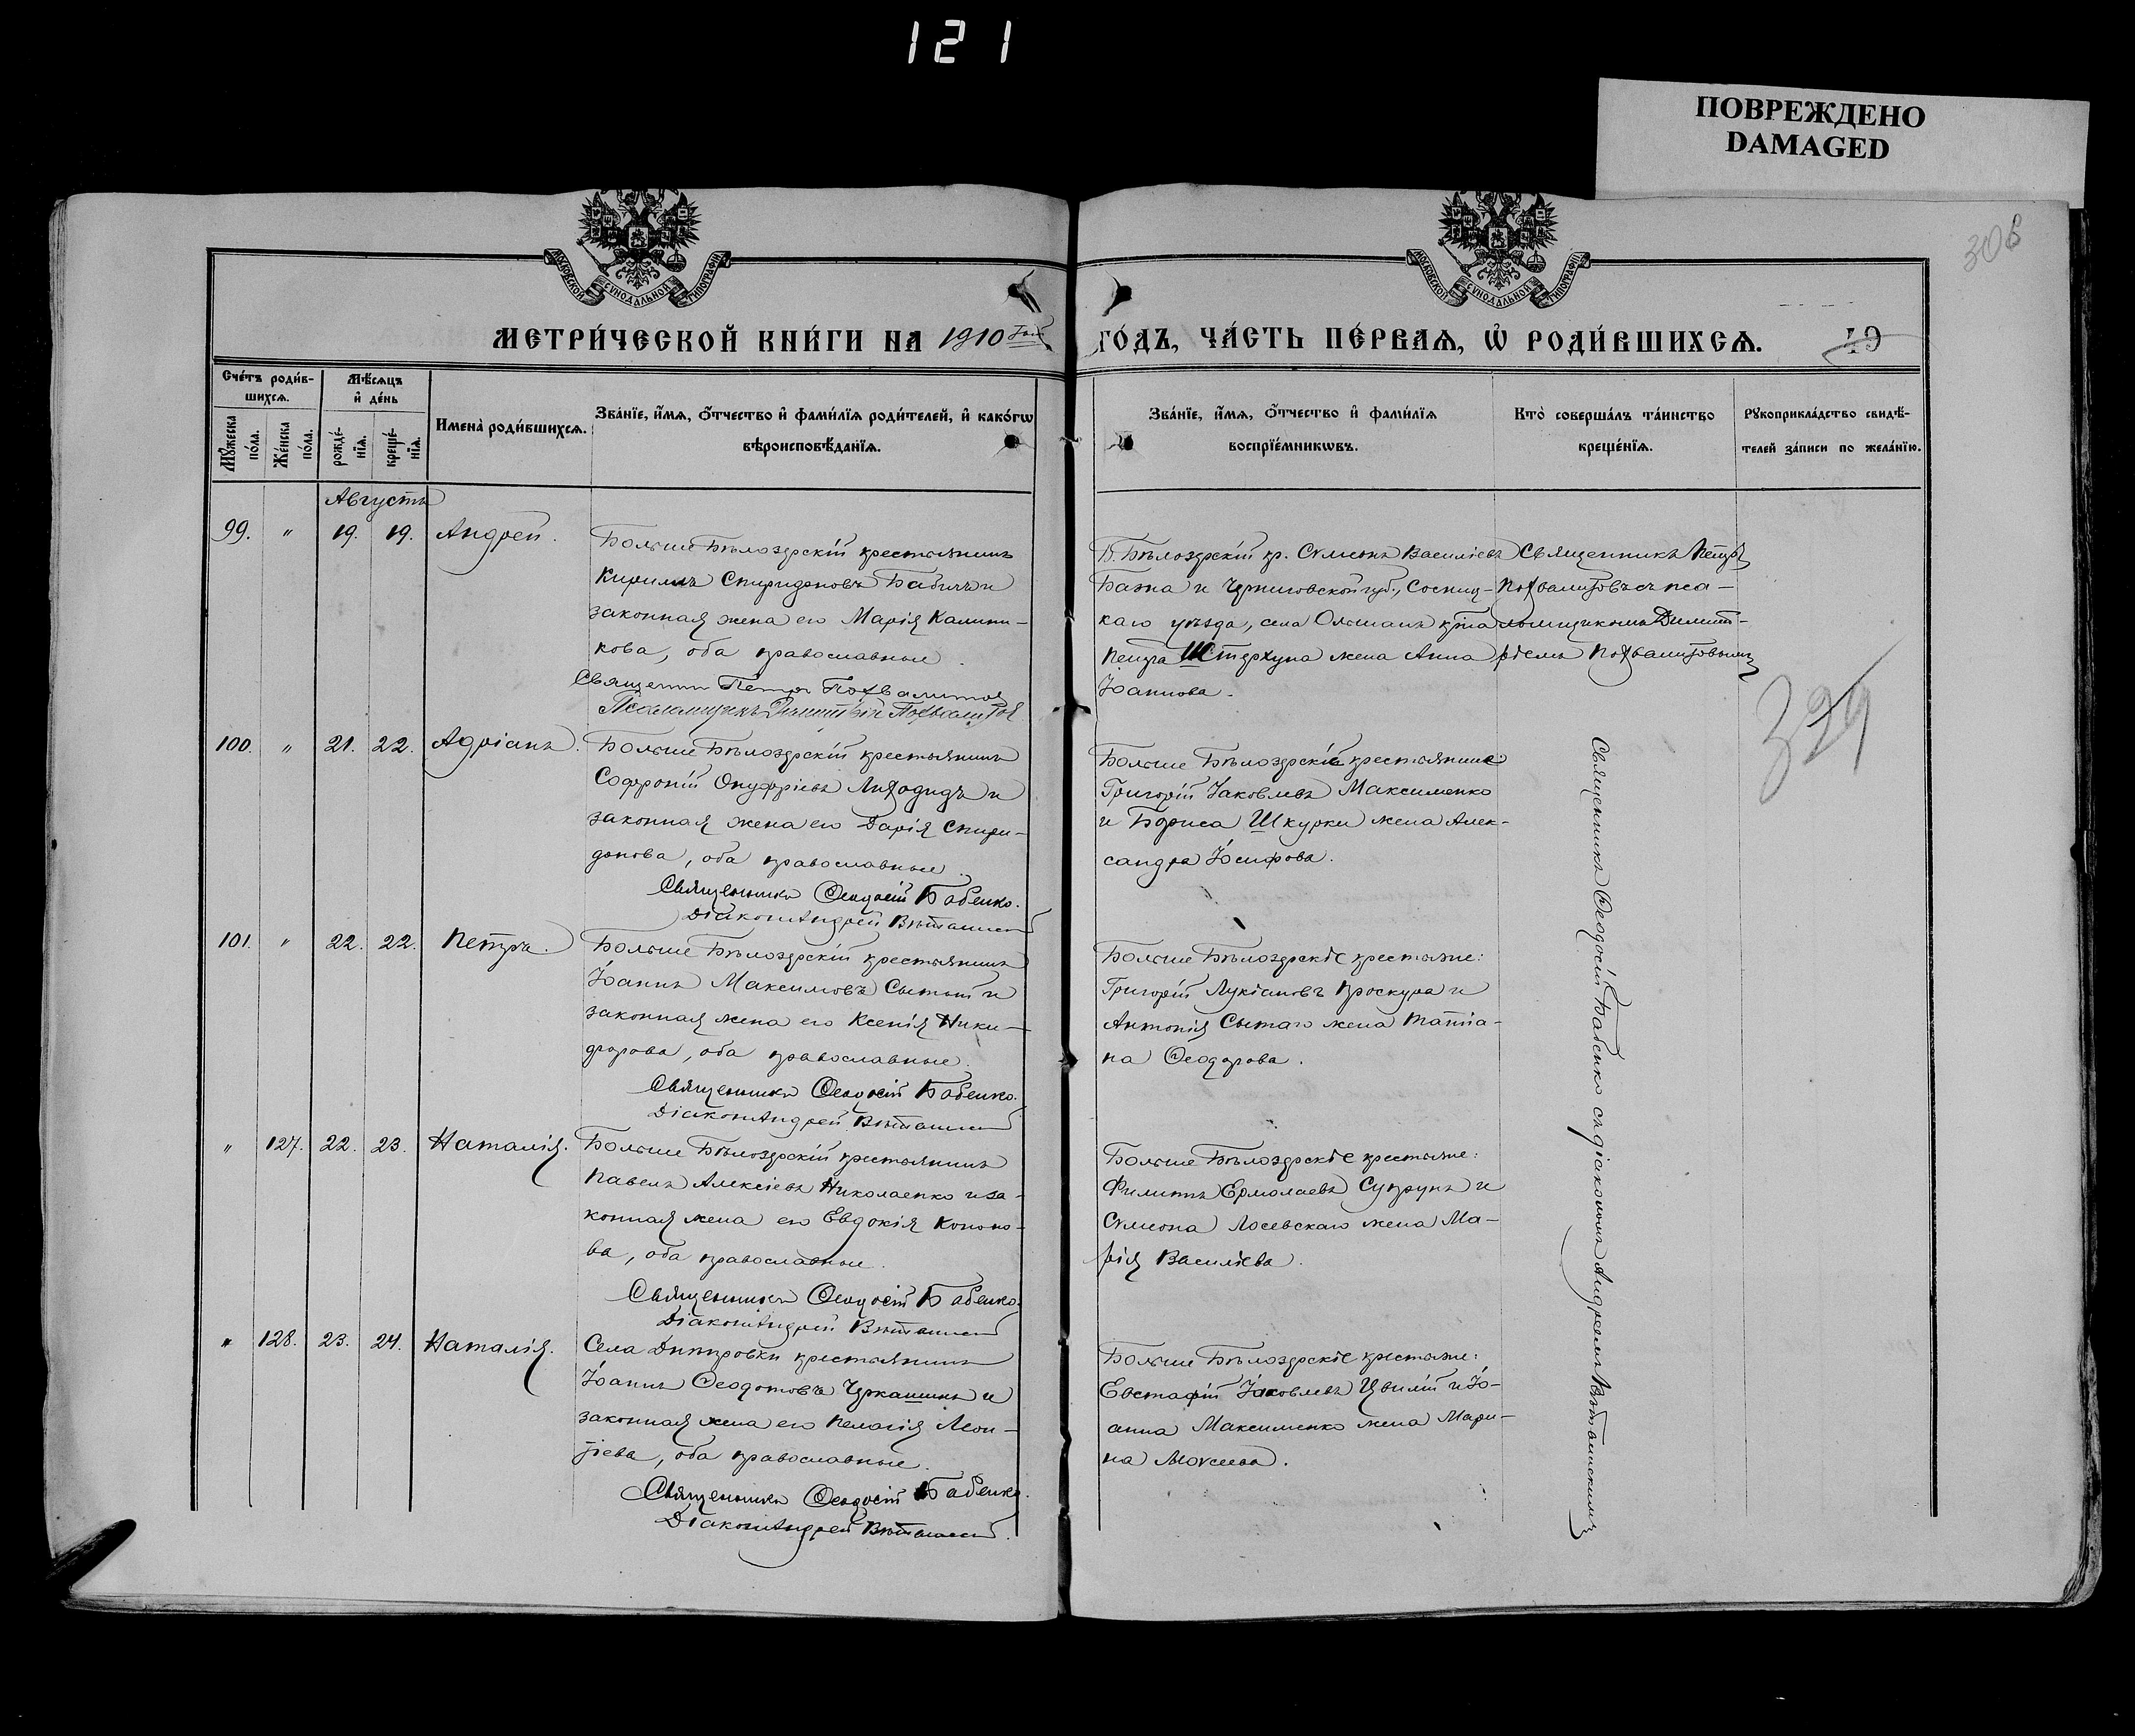 121
ПОВРЕЖДЕНО
DAMAGED
308
МОСКОВСКОЙ СѴНОДАЛЬНОЙ ТИПОГРАФІИ
МОСКОВСКОЙ СѴНОДАЛЬНОЙ ТИПОГРАФІИ
МЕТРИ́ЧЕСКОЙ КНИ́ГИ НА 1910 ГО́ДЪ, ЧА́СТЬ ПЕ́РВАѦ, Ѡ҆ РОДИ́ВШИХСѦ.
49
Сче́тъ роди́в-
шихсѧ.
Мѣ́сѧцъ
и҆ де́нь
Мꙋ́жеска по́ла.
Же́нска по́ла.
рожде́-
нїѧ.
креще́-
нїѧ.
Имена̀ роди́вшихсѧ.
Зва́нїе, и҆́мѧ, ѻ҆́тчество и҆ фами́лїѧ роди́телей, и҆ како́гѡ
вѣроисповѣ́данїѧ.
Зва́нїе, и҆́мѧ, ѻ҆́тчество и҆ фами́лїѧ
воспрїе́мникѡвъ.
Кто̀ соверша́лъ та́инство
креще́нїѧ.
Рꙋкоприкла́дство свидѣ́-
телей за́писи по жела́нїю.
Августъ
99. " 19. 19. Андрей.
Больше Бѣлозерскій крестьянинъ
Кириллъ Спиридоновъ Бабичъ и
законная жена его Марія Калини-
кова, оба православные.
Священн Петръ Похвалитов
Псаломщикъ Димитрій Похвалитов
Б. Бѣлозерскій кр. Сѵмеонъ Василіевъ
Бажа и Черниговской губ., Сосниц-
каго уѣзда, села Ольшанъ крта
Петра Штерхуна жена Анна
Іоаннова.
Священникъ Петръ
Похвалитовъ съ пса-
ломщикомъ Димит-
ріемъ Похвалитовымъ
324
100. " 21. 22. Адріанъ.
Больше Бѣлозерскій крестьянинъ
Софроній Онуфріевъ Лиходидъ и
законная жена его Дарія Спири-
донова, оба православные.
Священникъ Ѳеодосій Бабенко.
Діаконъ Андрей
Больше Бѣлозерскіе крестьяне
Григорій Іаковлевъ Максименко
и Бориса Шкурки жена Алек-
сандра Іосифова.
101. " 22. 22. Петръ.
Больше Бѣлозерскій крестьянинъ
Іоаннъ Максимовъ Сытый и
законная жена его Ксенія Ники-
форова, оба православные.
Священникъ Ѳеодосій Бабенко.
Діаконъ Андрей
Больше Бѣлозерскіе крестьяне:
Григорій Лукіановъ Проскура и
Антонія Сытаго жена Татіа-
на Ѳеодорова.
" 127. 22. 23. Наталія.
Больше Бѣлозерскій крестьянинъ
Павелъ Алексіевъ Николаенко и за-
конная жена его Евдокія Кононо-
ва, оба православные.
Священникъ Ѳеодосій Бабенко.
Діаконъ Андрей
Больше Бѣлозерскіе крестьяне:
Филиппъ Ермолаевъ Супрунъ и
Сѵмеона Лосевскаго жена Ма-
рія Василіева.
" 128. 23. 24. Наталія.
Села Днѣпровки крестьянинъ
Іоаннъ Ѳеодотовъ Черкашинъ и
законная жена его Пелагія Леон-
тіева, оба православные.
Священникъ Ѳеодосій Бабенко.
Діаконъ Андрей
Больше Бѣлозерскіе крестьяне:
Евстафій Іаковлевъ Цвилій и Іо-
анна Максименко жена Мари-
на Моѵсеева.
Священникъ Ѳеодосій Бабенко съ діакономъ Андреемъ